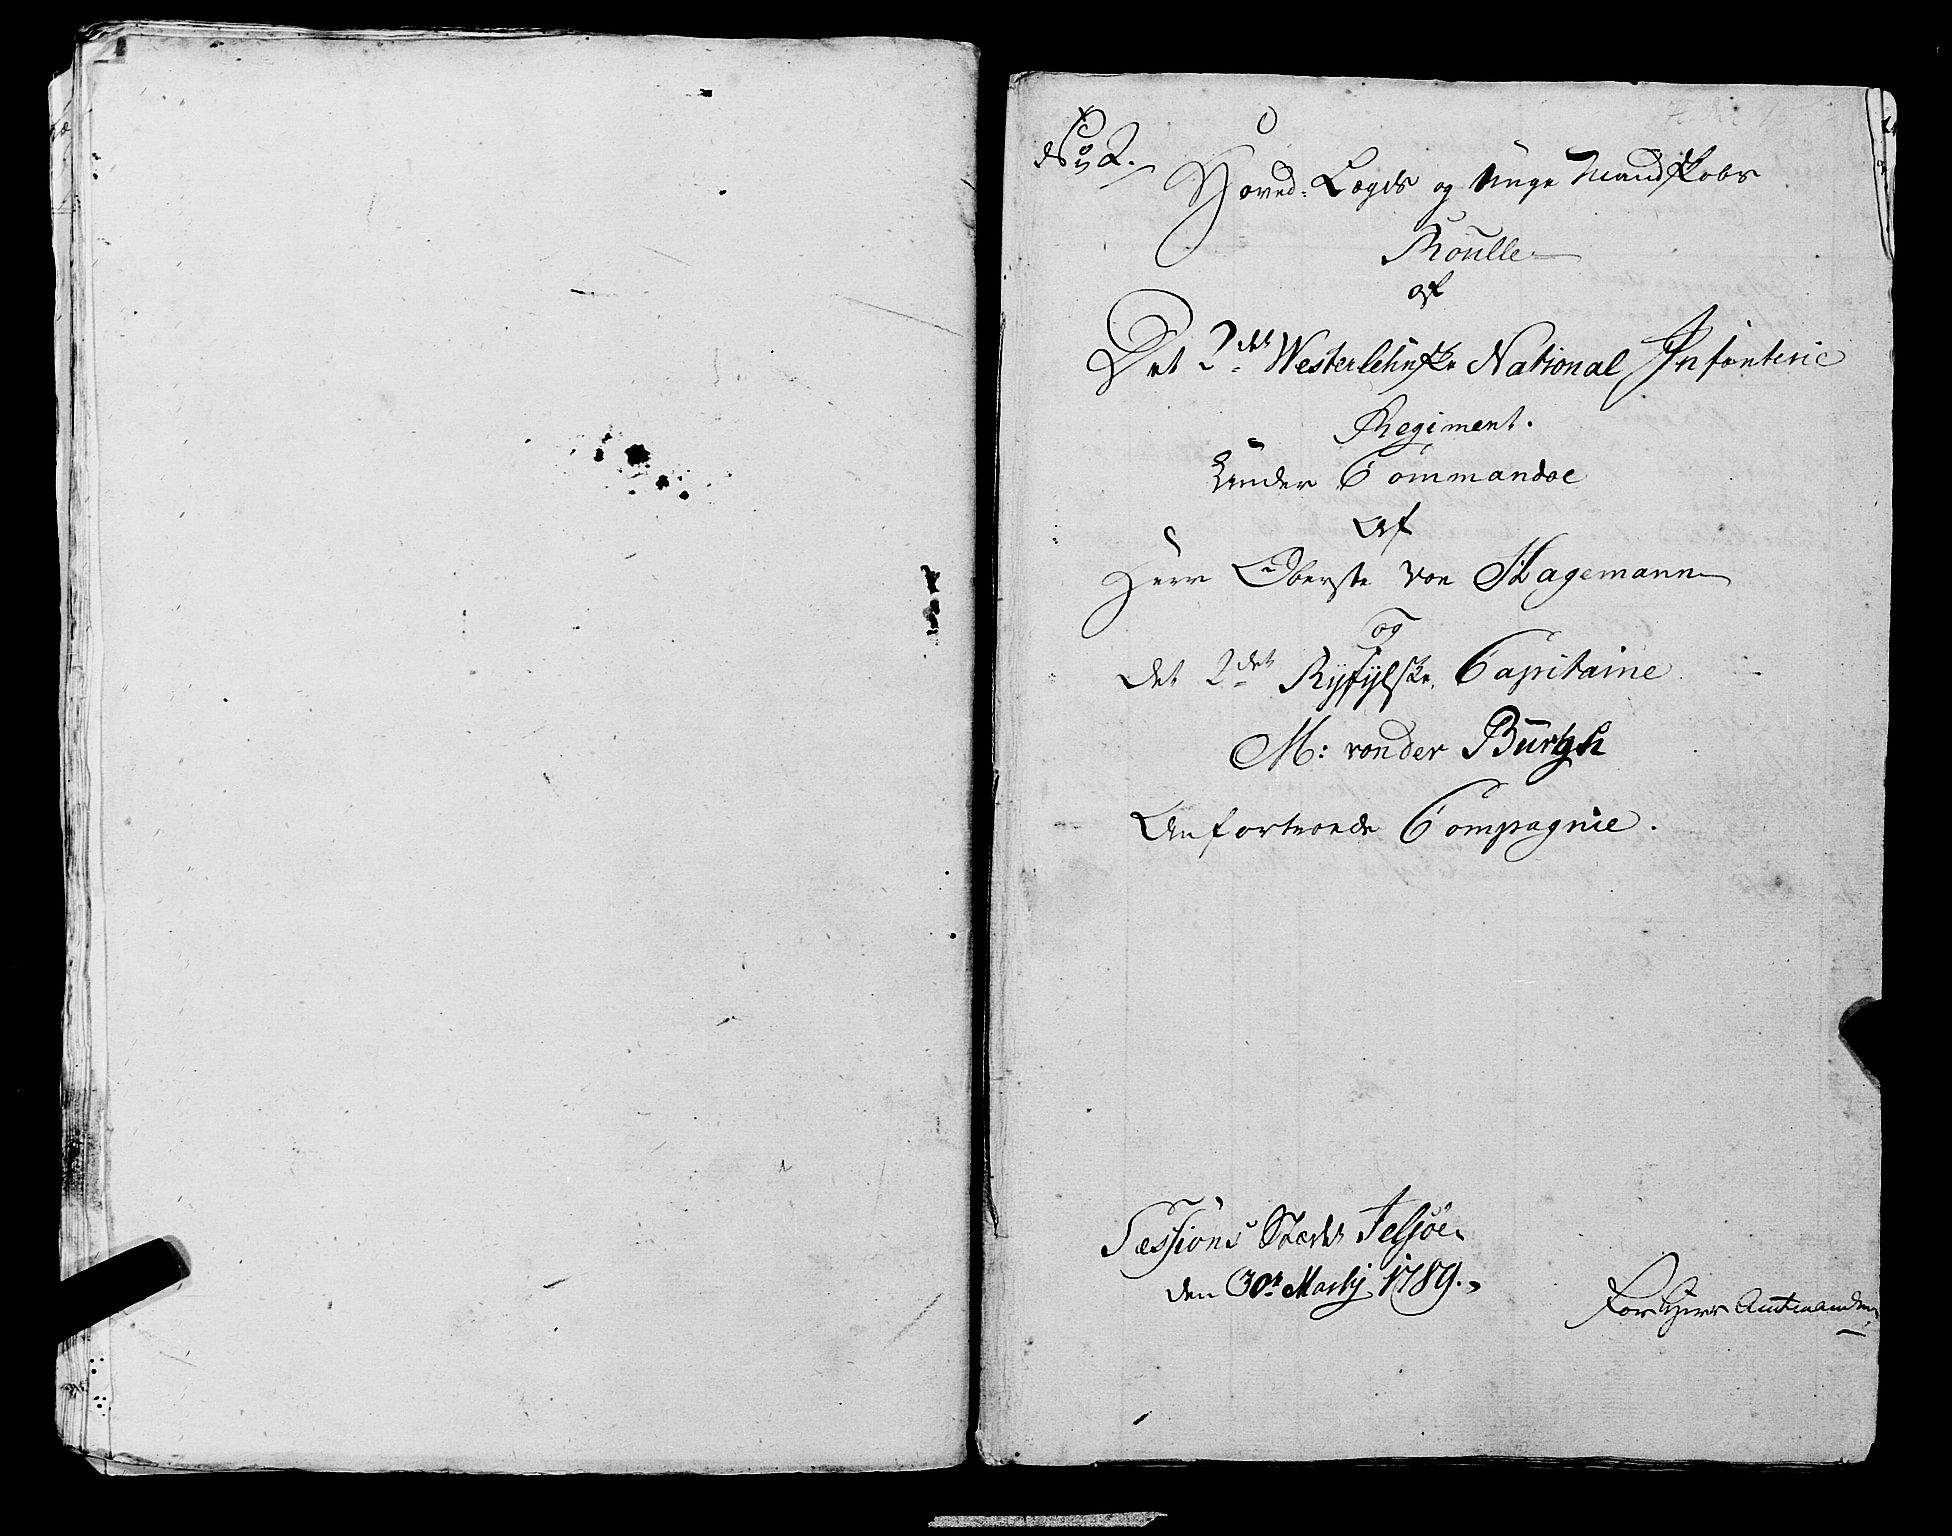 Hoved: Lægds og Unge Mandskabs
Roulle
af
Det 2det Westerlehnske National Infanterie
Regiment.
Under Commandoe
Af
Herr Oberste von Hagemann
og
det 2det Ryfylske Capitaine
M: von der Burgh
Anfortroede Compagnie.
Sessions Stædet Jelsøe
den 30t Martij 1789.
For Herr Amtmanden